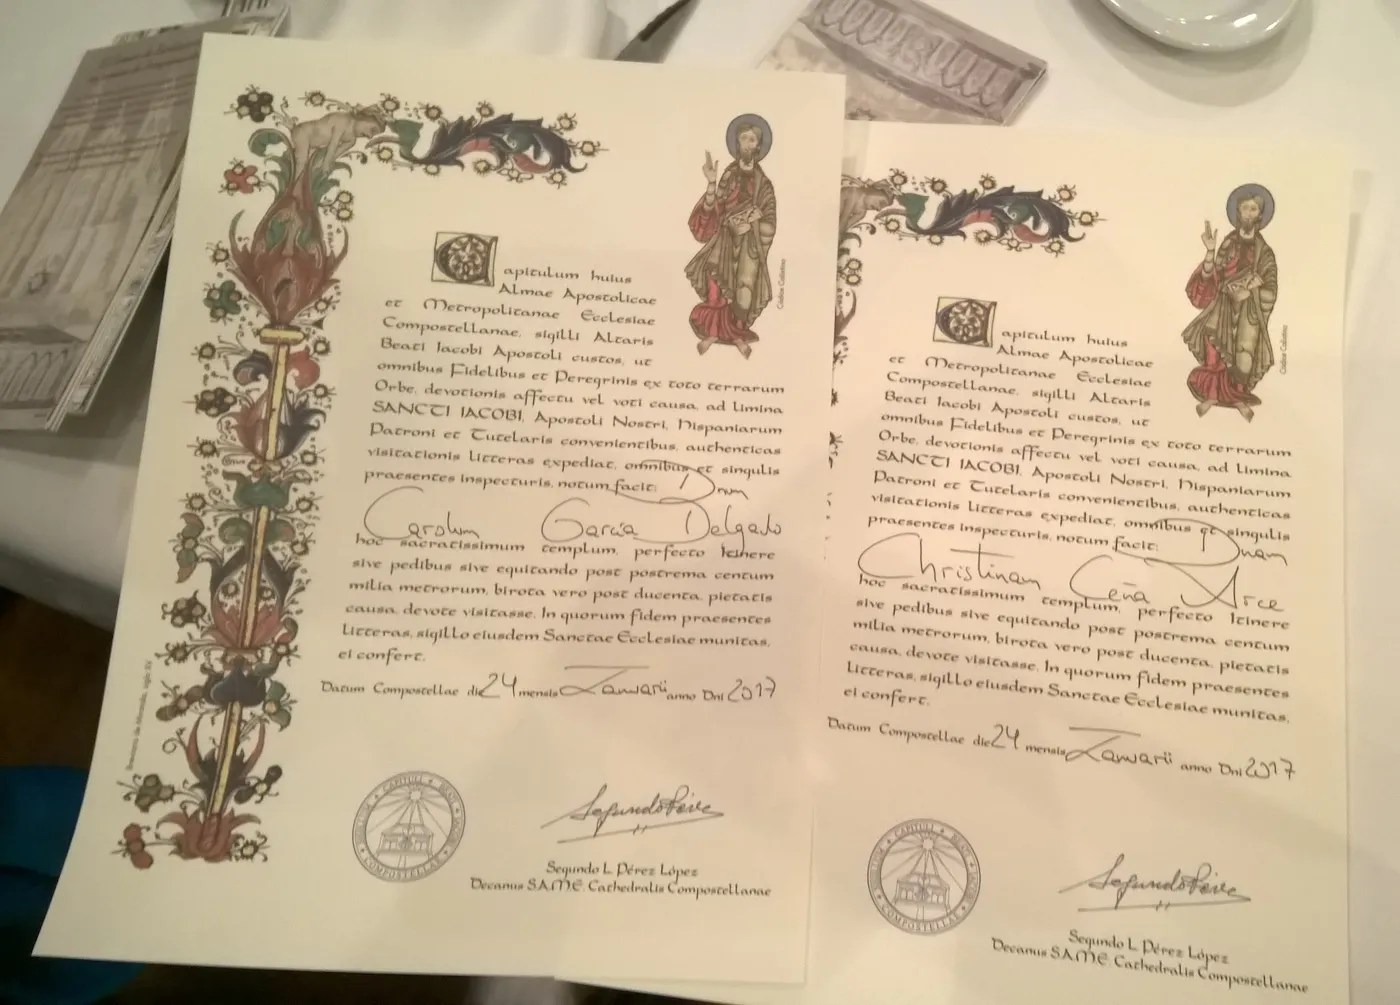 Capitulum huius
Almae Apostolicae
et Metropolitanae Ecclesiae
Compostellanae, sigilli Altaris
Beati Iacobi Apostoli custos, ut
omnibus Fidelibus et Peregrinis ex toto terrarum
Orbe, devotionis affectu vel voti causa, ad limina
SANCTI IACOBI, Apostoli Nostri, Hispaniarum
Patroni et Tutelaris convenientibus, authenticas
visitationis litteras expediat, omnibus et singulis
praesentes inspecturis, notum facit: Dnum
Carolum García Delgado
hoc sacratissimum templum, perfecto Itinere
sive pedibus sive equitando post postrema centum
milia metrorum, birota vero post ducenta, pietatis
causa, devote visitasse. In quorum fidem praesentes
litteras, sigillo eiusdem Sanctae Ecclesiae munitas,
ei confert.
Datum Compostellae die 24 mensis Ianuarii anno Dni 2017
Segundo L. Pérez López
Decanus S.A.M.E. Cathedralis Compostellanae
Codex Calixtino
CAPITULI BEATI IACOBI COMPOSTELLAE
Capitulum huius
Almae Apostolicae
et Metropolitanae Ecclesiae
Compostellanae, sigilli Altaris
Beati Iacobi Apostoli custos, ut
omnibus Fidelibus et Peregrinis ex toto terrarum
Orbe, devotionis affectu vel voti causa, ad limina
SANCTI IACOBI, Apostoli Nostri, Hispaniarum
Patroni et Tutelaris convenientibus, authenticas
visitationis litteras expediat, omnibus et singulis
praesentes inspecturis, notum facit: Dnam
Christinam Ceña Arce
hoc sacratissimum templum, perfecto Itinere
sive pedibus sive equitando post postrema centum
milia metrorum, birota vero post ducenta, pietatis
causa, devote visitasse. In quorum fidem praesentes
litteras, sigillo eiusdem Sanctae Ecclesiae munitas,
ei confert.
Datum Compostellae die 24 mensis Ianuarii anno Dni 2017
Segundo L. Pérez López
Decanus S.A.M.E. Cathedralis Compostellanae